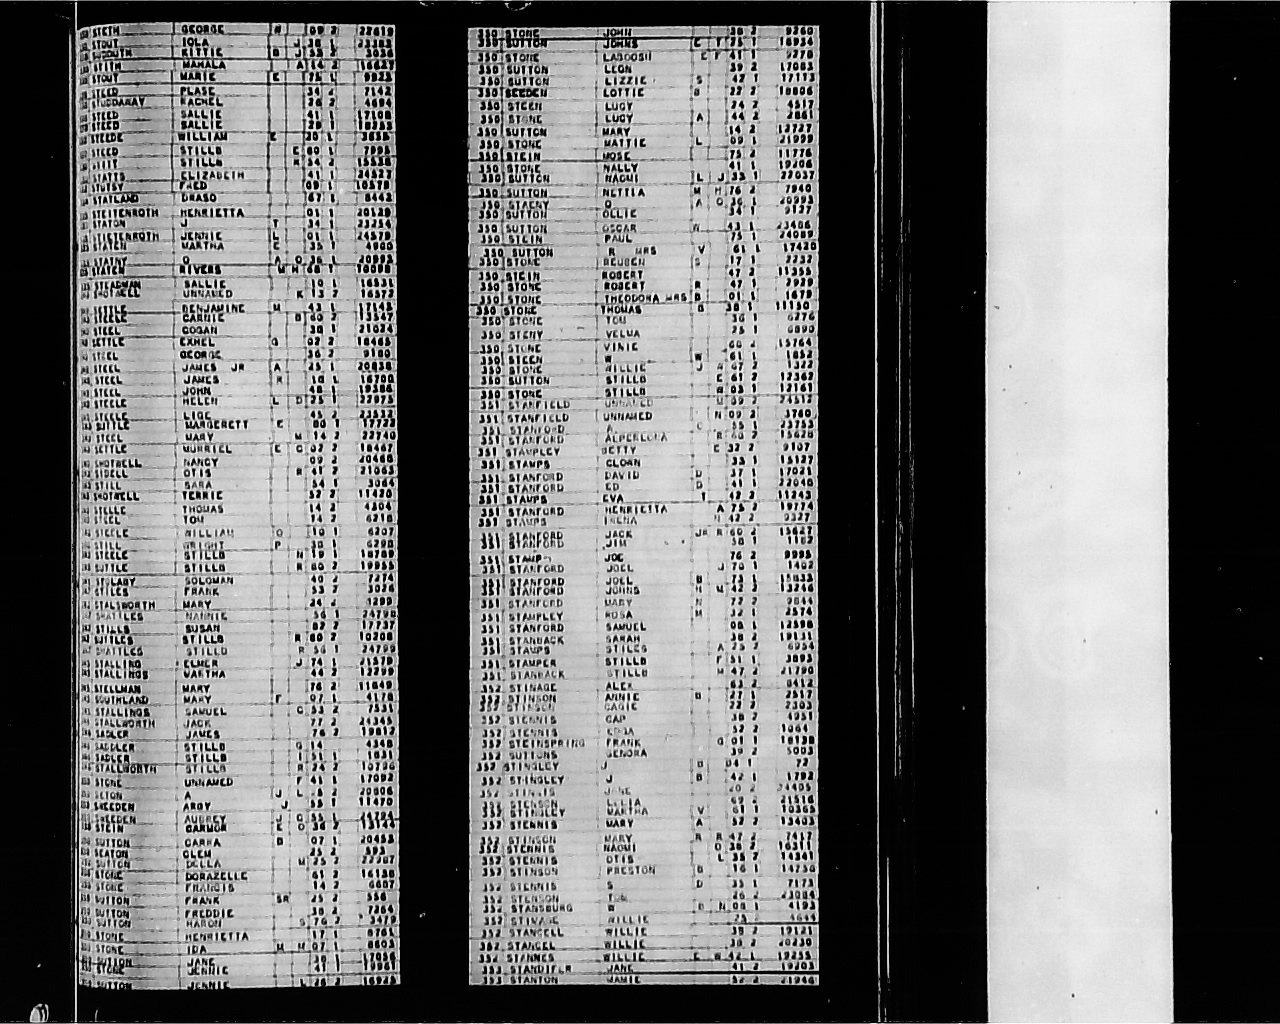 STETH GEORGE W 69 2 22619
STOUT IOLA J 38 1 23383
SUDDUTH KITTIE B J 53 2 3036
STITH MAHALA A 14 2 16627
STOUT MARIE E 75 1 9923
STEED PLASE 34 2 7142
STUDDARAY RACHEL 26 2 4694
STEED SALLIE 41 1 17108
STEED SALLIE 28 1
STEEDE WILLIAM E 20 1 3658
STEED STILLB E 60 1 7995
STITT STILLB R 54 2 15538
STATTS ELIZABETH 41 1 24527
STUTSY FRED 09 1 10578
STATLAND DRASO 67 1 8442
STEITENROTH HENRIETTA 01 1 20129
STATON J T 34 1 23254
STIETENROTH JENNIE L 01 1 24579
STATEN MARTHA E 35 1 4980
STATNY O A O 36 1 20993
STATEN RIVERS M R 68 1 10098
STEADMAN SALLIE 10 1 16531
SHOTWELL UNNAMED K 13 2 16572
SETTLE BENJAMINE M 43 1 17145
STEELE CARNIE B 60 2 5347
STEEL COGAN 30 1 21024
SETTLE EXHEL G 02 2 18465
STEEL GEORGE 36 2 9180
STEEL JAMES JR A 25 1 20838
STEEL JAMES R 18 1 16700
STEEL JOHN 48 1 19386
STEELE HELEN L D 25 1 22975
STEELE LIGE 45 2 23532
SUTTLE MARGERETT E 80 1 17722
STEEL MARY M 14 2 22740
SETTLE MURRIEL E C 02 2 18467
SHOTWELL NANCY 09 2 20468
SIDELL OTIS R 41 2 21063
STILL SARA 54 1 3064
SHOTWELL TERRIE 52 2 11420
STELLE THOMAS 14 2 4304
STEEL TOM 14 2 6218
STEELE WILLIAM O 10 1 6207
STILL WRIGHT P 30 1 6290
STEELE STILLB N 59 1 18789
SUTTLE STILLB R 80 2 19955
STOLABY SOLOMAN 40 2 7274
STILES FRANK 53 2 3026
STALSWORTH MARY 24 2 1299
SHATTLES NANNIE 56 1 24798
STILLS SUSAN 82 2 17737
SUTTLES STILLB R 80 2 10208
SHATTLES STILLB R 56 1 24799
STALLING ELMER J 74 1 21579
STALLINGS MARTHA 44 2 12299
STELLMAN MARY 76 2 11649
SOUTHLAND MARY F 07 1 4178
STALLINGS SAMUEL C 53 2 7531
STALLWORTH JACK 77 2 24345
SADLER JAMES 76 2 19812
SADDLER STILLB G 14 4348
SADLER STILLB I 51 1 1831
STALLWORTH STILLB R 24 2 10796
STONE UNNAMED F 41 1 17092
SETON A J L 45 2 20806
SWEEDEN ARDY J 55 1 11470
SWEEDEN AUBREY J C 55 1 24794
STEIN GARMOR E O 36 2 13144
SUTTON CARRA B 07 1 20453
SEATON CLEM 25 2 593
SUTTON DELLA M 25 2 22387
STONE DORAZELLE 61 2 16138
STONE FRANCIS 14 2 6607
SUTTON FRANK SR 25 2 556
SUTTON FREDDIE 38 2 7264
SUTTON HARON S 76 2 3479
STONE HENRIETTA 17 1 8761
STONE IDA M M 07 1 8603
SUTTON JANE 30 1 17056
STONE JENNIE 41 1 19961
SUTTON JENNIE L 26 2 16925
350 STONE JOHN 38 2 9260
350 SUTTON JOHNS E T 25 1 18954
350 STONE LABOOSH E F 41 1 2778
350 SUTTON LEON 39 2 17083
350 SUTTON LIZZIE S 47 1 17113
350 SEEDEN LOTTIE B 22 2 10806
350 STEEN LUCY 24 2 4517
350 STONE LUCY A 44 2 2861
350 SUTTON MARY 14 2 12727
350 STONE MATTIE L 09 1 21999
350 STEIN MOSE 75 2 11776
350 STONE NALLY 41 1 19206
350 SUTTON NAOMI L J 33 1 22037
350 SUTTON NETTIA M H 76 2 7940
350 STAENY O A O 36 1 20993
350 SUTTON OLLIE 34 1 9137
350 SUTTON OSCAR W 43 1 23406
350 STEIN PAUL 75 1 24089
350 SUTTON R MRS V 61 1 17420
350 STONE REUBEN S 17 1 2232
350 STEIN ROBERT 47 2 11355
350 STONE ROBERT R 47 1 2929
350 STONE THEODORA MRS B 01 1 1679
350 STONE THOMAS G 30 1 11150
350 STONE TOM 36 1 6276
350 STENY VELMA 25 1 6890
350 STONE VINIE 60 2 15764
350 STEEN W W 61 1 1852
350 STONE WILLIE J W 67 2 1322
350 SUTTON STILLB E 61 2 12362
350 STONE STILLB W 03 1 12161
351 STANFIELD UNNAMED M 09 2 24512
351 STANFIELD UNNAMED N 09 2 3760
351 STANFORD A C 55 1 23753
351 STANFORD ALPERLONA R 60 2 15628
351 STAMPLEY BETTY E 32 2 9107
351 STAMPS CLORN 33 1 15127
351 STANFORD DAVID D 37 1 17021
351 STANFORD ED D 41 1 22040
351 STAMPS EVA T 42 2 11243
351 STANFORD HENRIETTA A 75 2 19774
351 STAMPS IRENA H 42 2 9327
351 STANFORD JACK JR R 60 2 15627
351 STANFORD JIM 58 1 1182
351 STAMPS JOE 76 2 9995
351 STANFORD JOEL J 70 1 1402
351 STANFORD JOEL B 73 1 15833
351 STANFORD JOHNS H M 42 2 13248
351 STANFORD MARY N 77 2 9844
351 STAMPLEY ROSA M 32 1 2574
351 STANFORD SAMUEL 08 1 2598
351 STANBACK SARAH 38 2 19131
351 STAMPS STILES A 25 2 6954
351 STAMPER STILLB F 51 1 3893
351 STANBACK STILLB M 47 2 21790
352 STINAGE ALEX 63 2 8412
352 STINSON ANNIE B 27 1 2517
352 STINSON CAGIE 22 2 2303
352 STENNIS CAP 38 2 4951
352 STENNIS EDNA 52 2 1064
352 STEINSPRING FRANK G 01 1 18138
352 SUTTONS GENORA 39 2 5003
352 STINGLEY J D 04 1 72
352 STINGLEY J B 42 1 1792
352 STENNIS JANE 20 2 24405
352 STENSON LELIA 69 2 21516
352 STINGLEY MARTHA V 61 1 10365
352 STENNIS MARY A 52 2 13403
352 STINSON MARY R R 47 2 7417
352 STENNIS NAOMI O 38 2 16311
352 STENNIS OTIS L 35 2 14341
352 STINSON PRESTON B 16 1 14730
352 STENNIS S D 35 1 7173
352 STENSON TOM 26 2 23084
352 STANSBURG W B N 08 1 4193
352 STIVAGE WILLIE 25 2 4644
352 STANCELL WILLIE 38 2 19121
352 STANCEL WILLIE 38 2 20230
352 STANNES WILLIE E W 42 1 19255
353 STANDIFER JANE 41 2 19203
353 STANTON MAMIE 52 2 21946